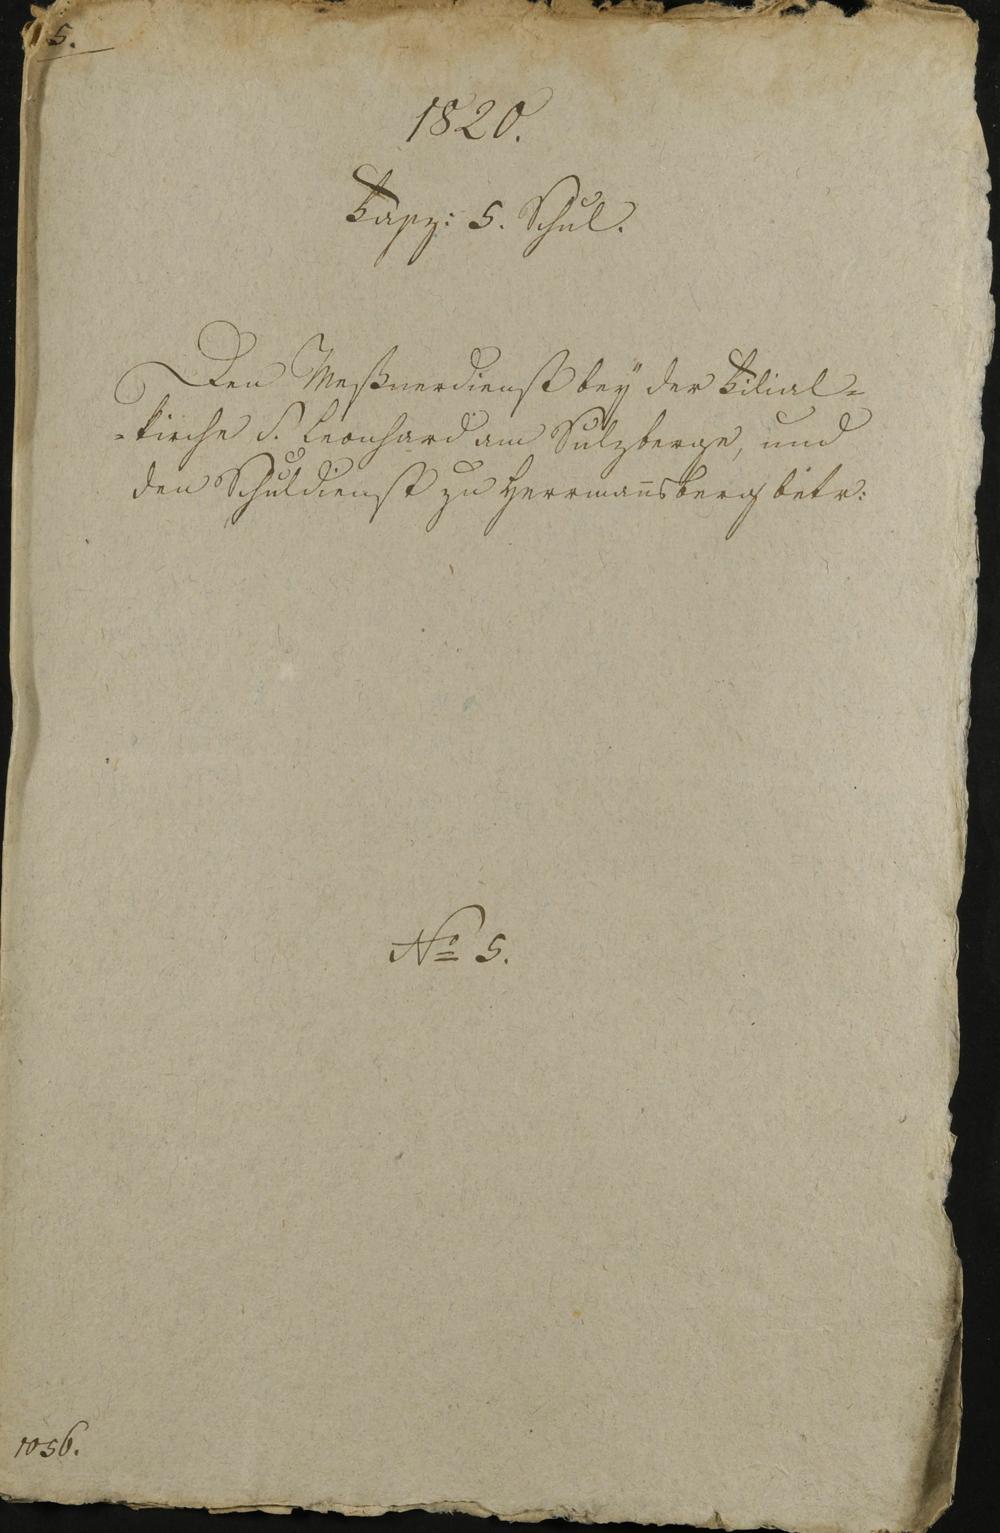 5.
1820.
Fasz: 5. Schul.
Den Meßnerdienst bey der Filial=
=kirche S. Leonhard am Sulzberge, und
den Schuldienst zu Herrmañsberg betr:
No 5.
1056.